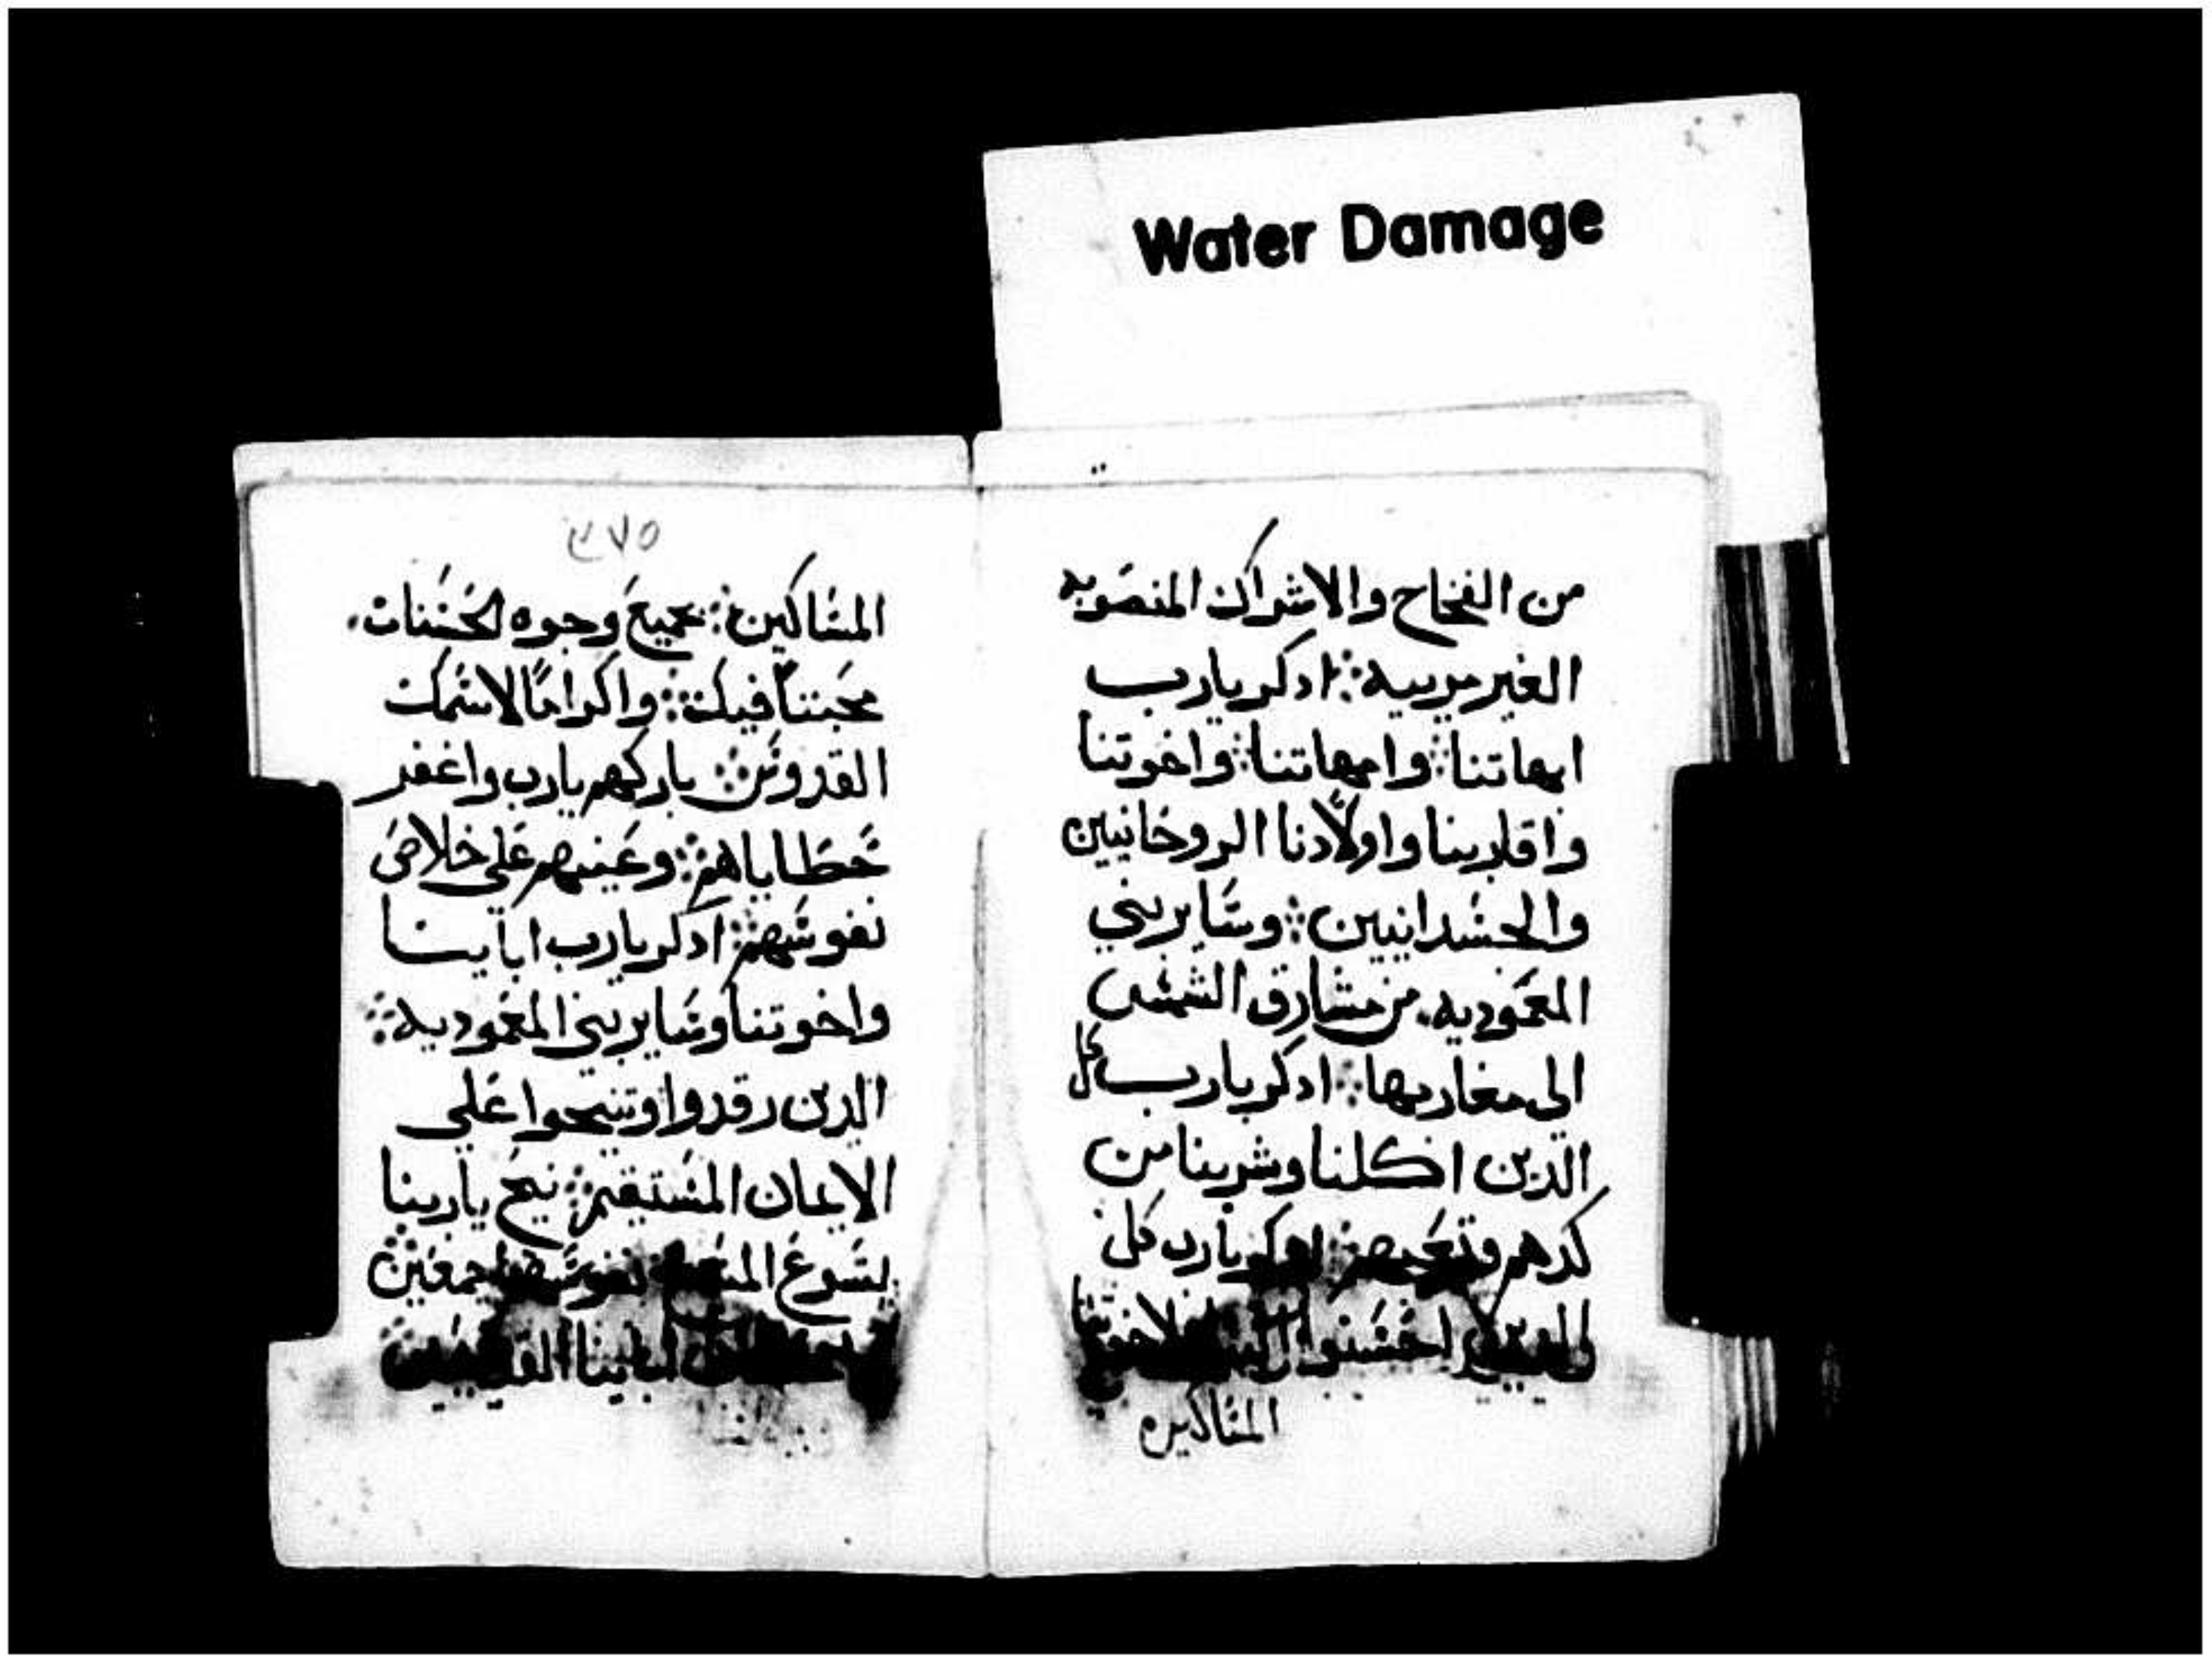 Water Damage
من الفخاخ والاشراك المنصوبه
الغير مرييه ؞ ادكر يارب
ابهاتنا ؞ وامهاتنا ؞ واخوتنا
واقاربنا واولادنا الروحانيين
والجسدانيين ؞ وساير بني
المعموديه. من مشارق الشمس
الي مغاربها ؞ ادكر يارب كل
الدين اكلنا وشربنا من
كدهم وتعبهم ؞ ادكر يارب كل
احسنوا
المساكين
٣٧٥
المساكين ؞ بجميع وجوه الحسنات.
محبتنا فيك ؞ واكرامًا لاسمك
القدوس ؞ باركهم يارب واغفر
خطاياهم ؞ وعينهم علي خلاص
نفوسهم ؞ ادكر يارب اباينا
واخوتنا وساير بني المعموديه ؞
الدين رقدوا وتنيحوا علي
الايمان المستقيم ؞ نيح ياربنا
يسوع نفوسهم اجمعين ؞
اباينا القديسين ؞